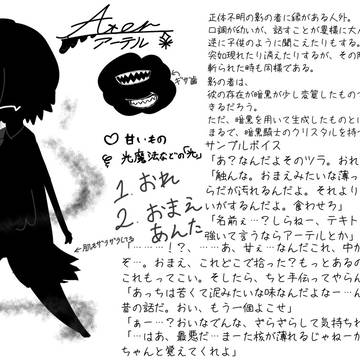 Ater
アーテル
ギザ歯
♡ 甘いもの
光魔法などの「光」
1. おれ
2. おまえ
あんた
←肌もザラザラしてる
正体不明の影の者に縁がある人外。
口調が幼いが、話すことが異様に大人
逆に子供のように聞こえたりもする。
突如現れたり消えたりするが、その
斬られた時も同様である。
影の者は、
彼の存在が暗黒が少し変質したもので
きるだろう。
ただ、暗黒を用いて生成したものとは
まるで、暗黒騎士のクリスタルを持つ
サンプルボイス
「あ?なんだよそのツラ。おれ
「触んな。おまえみたいな薄っ
らだが汚れるんだよ。それより
いがするんだよ。食わせろ」
「名前ぇ…?しらねー、テキト
強いて言うならアーテルとか」
「………!?、……あ、甘ぇ…なんだこれ、中か
ぞ…。おまえ、これどこで拾った?もっとあるの
これもってこい。そしたら、ちと手伝ってやらん
「あっちは苦くて泥みたいな味なんだよなー…ん
昔の話だ。おい、もう一個よこせ」
「ぁー…?おいなでんな、さらさらして気持ちわ
「…はあ、最悪だ…また核が薄れるじゃねーか
ちゃんと覚えてくれよ」